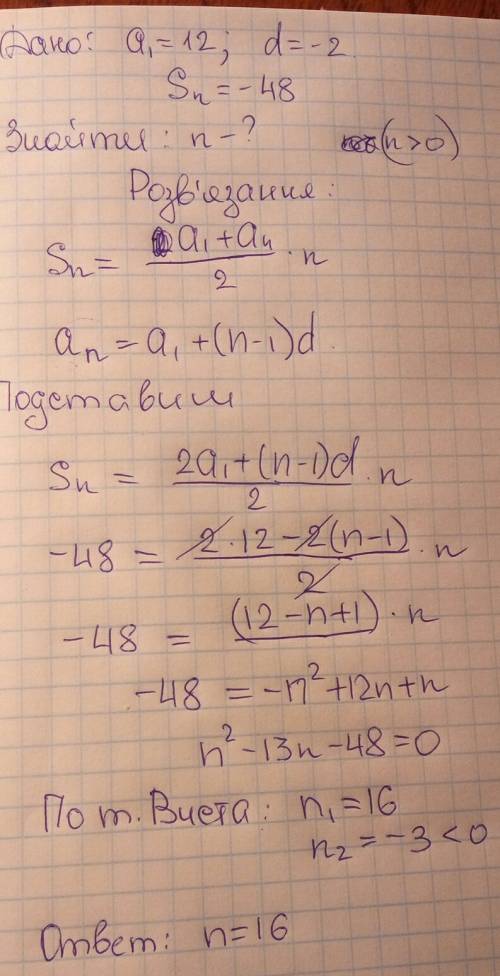 Дано: a₁=12; d=-2
Sₙ=-48
Знайти: n-? (n>0)
Розв'язання:
Sₙ= (a₁+aₙ)/2 · n
aₙ=a₁+(n-1)d.
Подставим
Sₙ = (2a₁+(n-1)d)/2 · n
-48 = (2·12-2(n-1))/2 · n
-48 = (12-n+1)·n
-48 = -n²+12n+n
n²-13n-48=0
По т. Виета: n₁=16
n₂=-3<0
Ответ: n=16